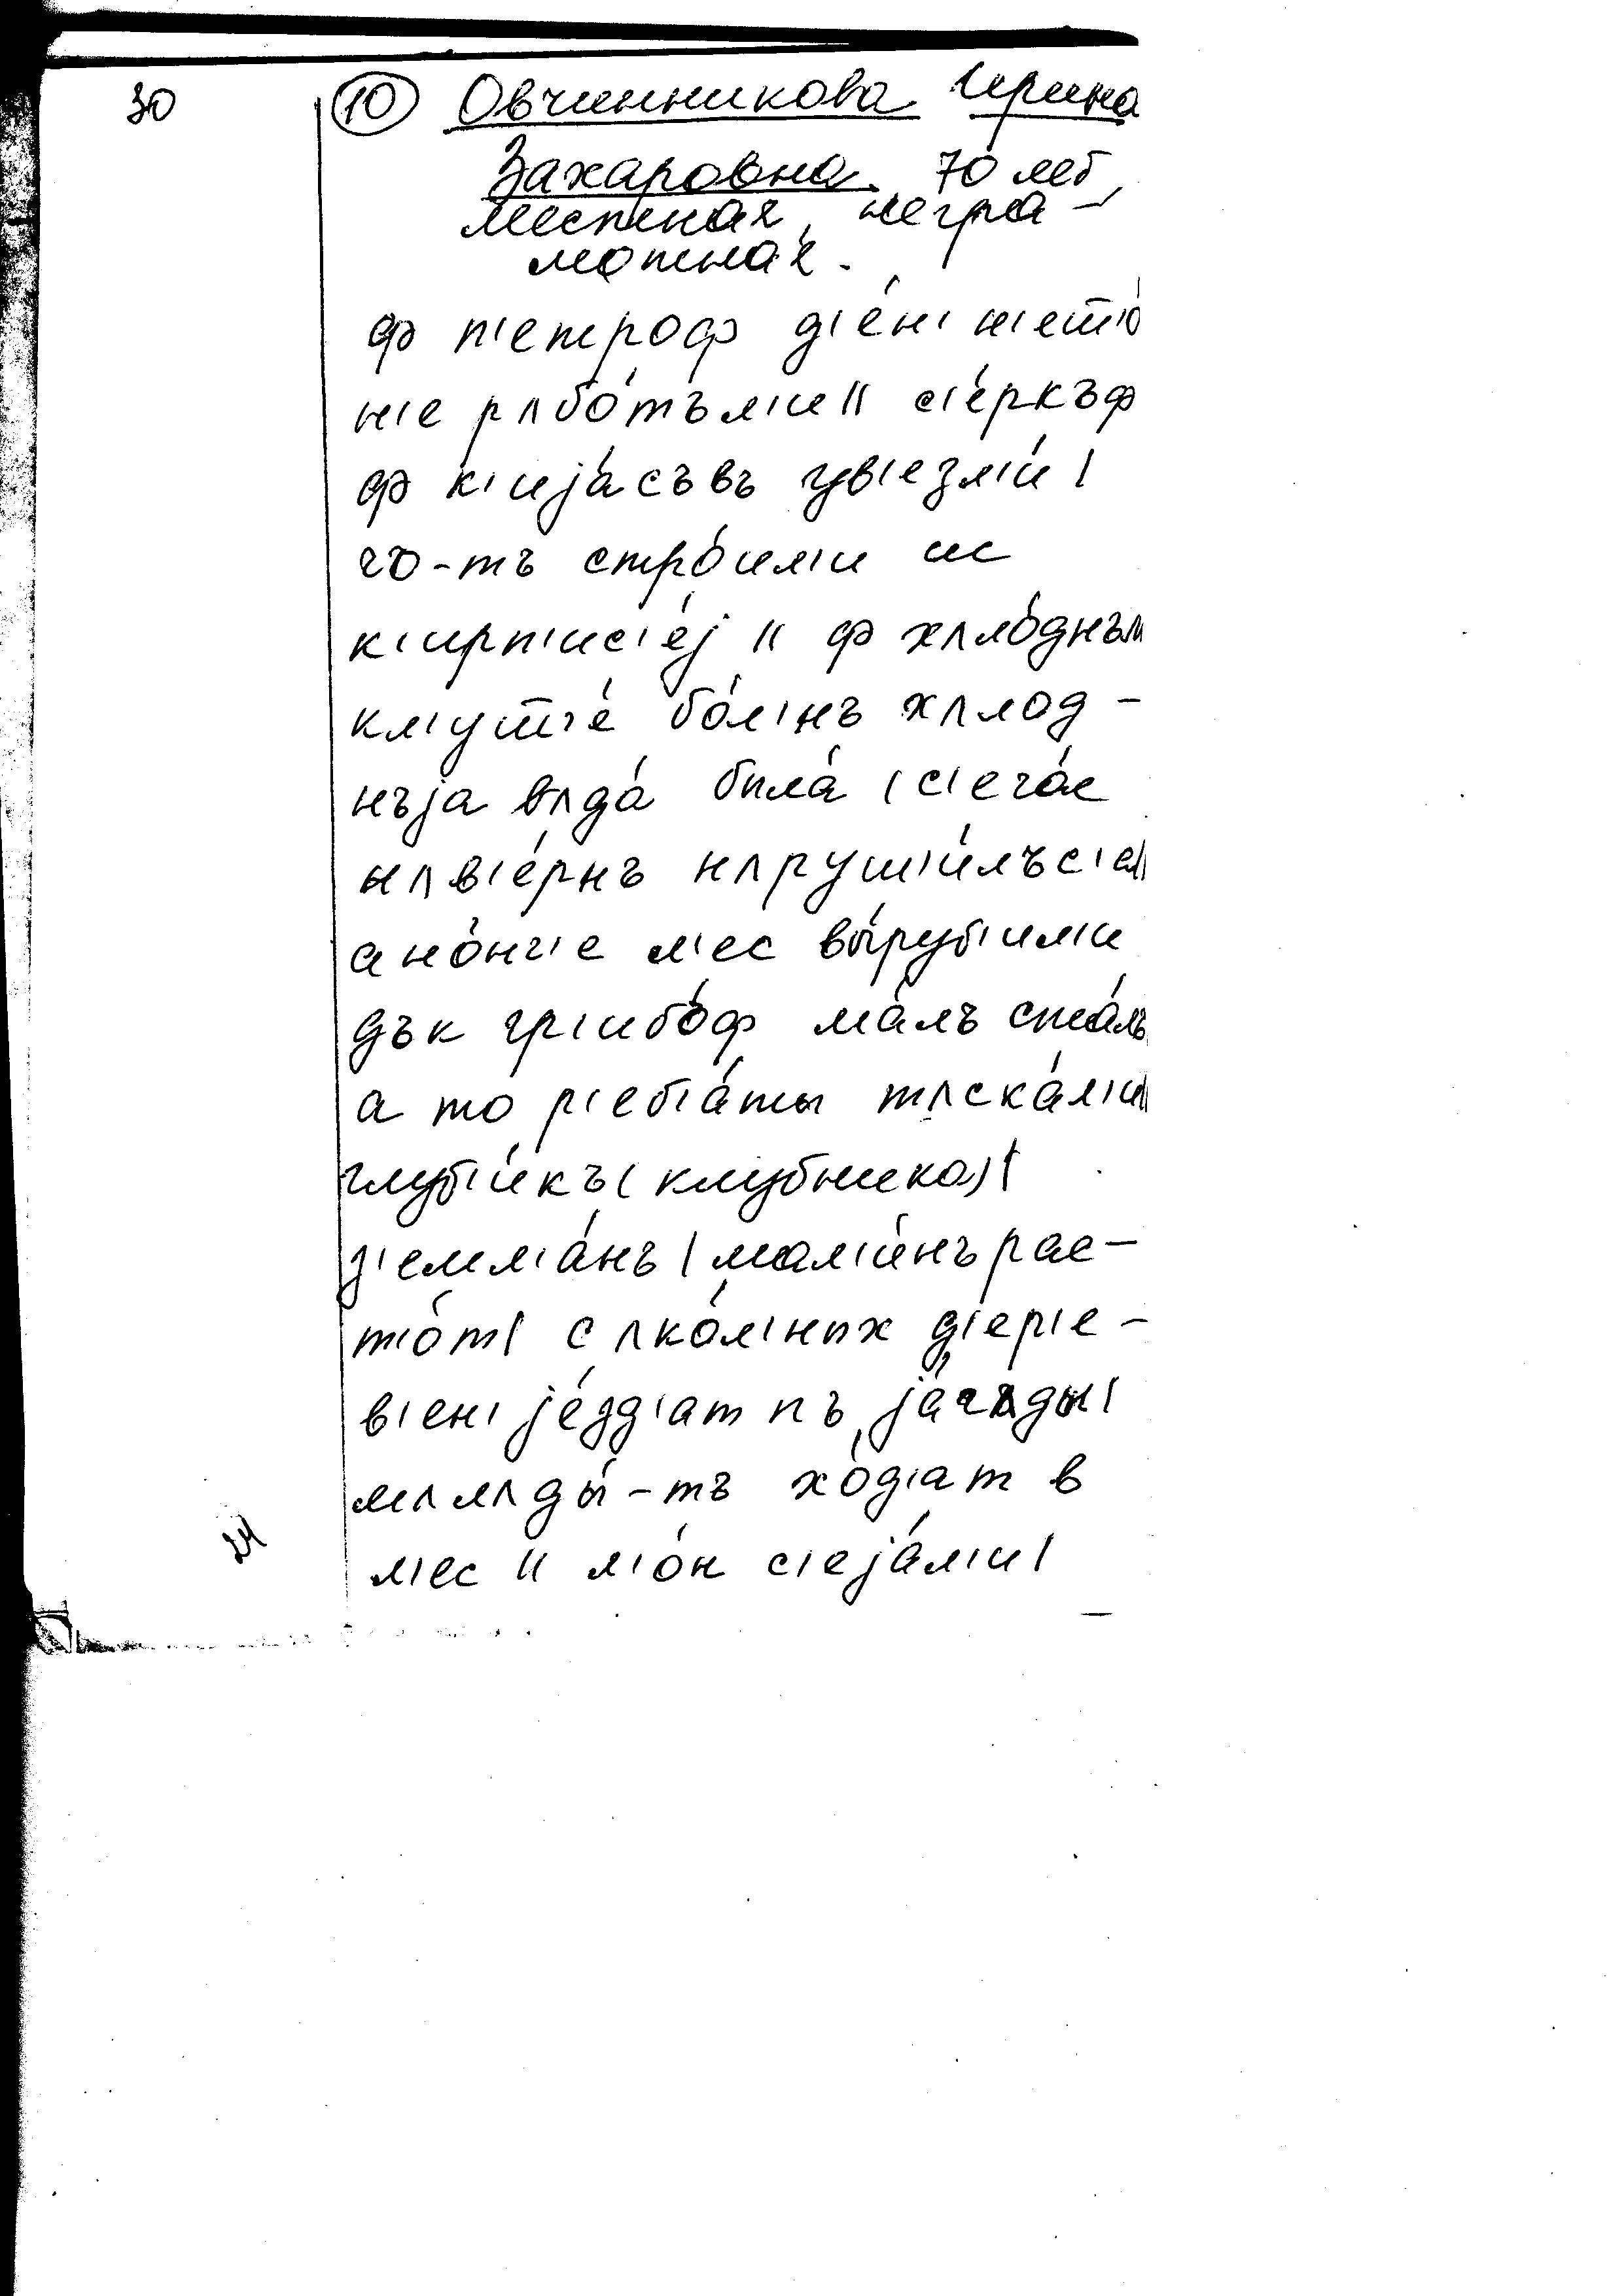 30
⑩ Овчинникова Ирина
Захаровна. 70 лет,
местная, негра-
мотная.
ф п'етроф д'е́н' н'ешт'о
н'е рʌбо́тъл'и ‖ с'е́ркъф
ф к'ија́съвъ ув'езл'и́ |
чо-тъ стро́ил'и ис
к'ирп'ис'е́ј ‖ ф хʌло́днъм
кл'у́ш'е́ бо́л'нъ хʌлод-
нъја вʌда́ была́ | с'еча́с
нʌв'е́рнъ нʌруш'и́лъс'е ‖
а но́нч'е л'ес вы́руб'ил'и
дък гр'ибо́ф ма́лъ ста́лъ
а то р'еб'а́ты тʌска́л'и ‖
глуб'и́къ (клубника) |
з'емл'а́нъ | мал'и́нъ рас-
т'о́т | с ʌко́л'ных д'ер'е-
в'ен' је́зд'ат пъ ја́гʌды |
мʌлʌды́-тъ хо́д'ат в
л'ес ‖ л'о́н с'еја́л'и |